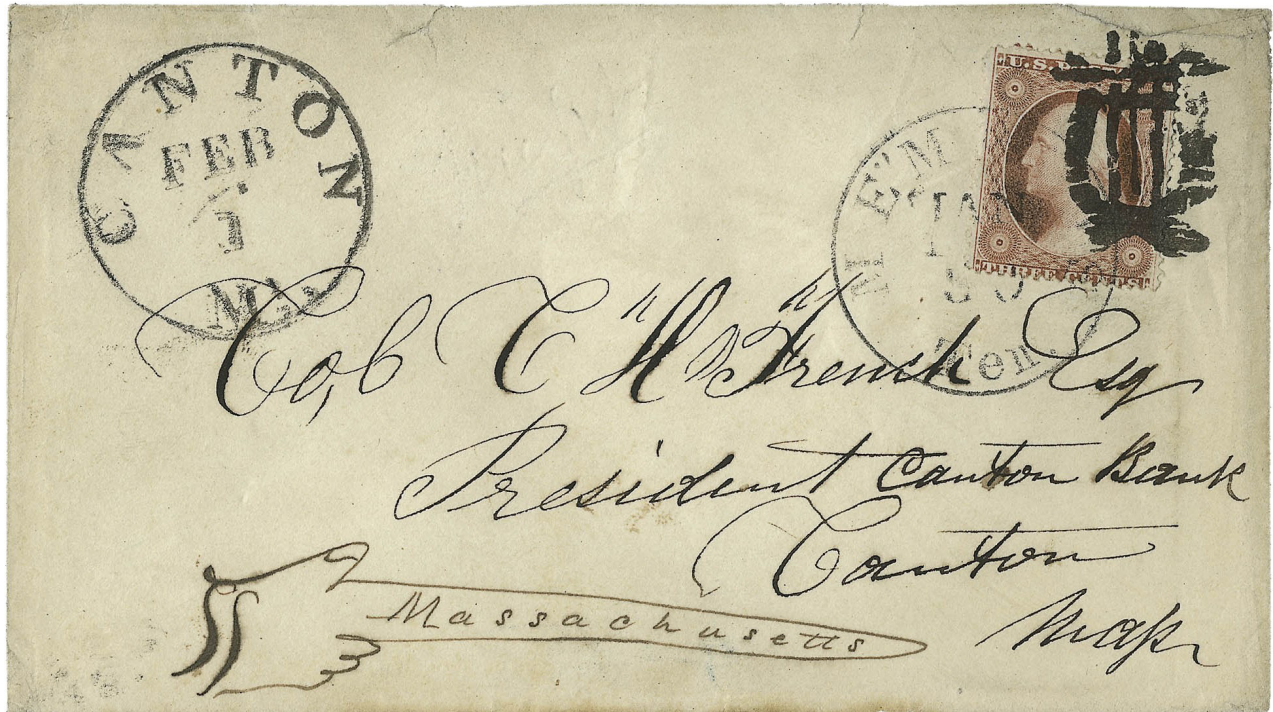 CANTON
FEB
1
MS.
U.S.
THREE CENTS
MEM
JAN
Ten.
Col C H French Esq
President Canton Bank
Canton
Mass
Massachusetts